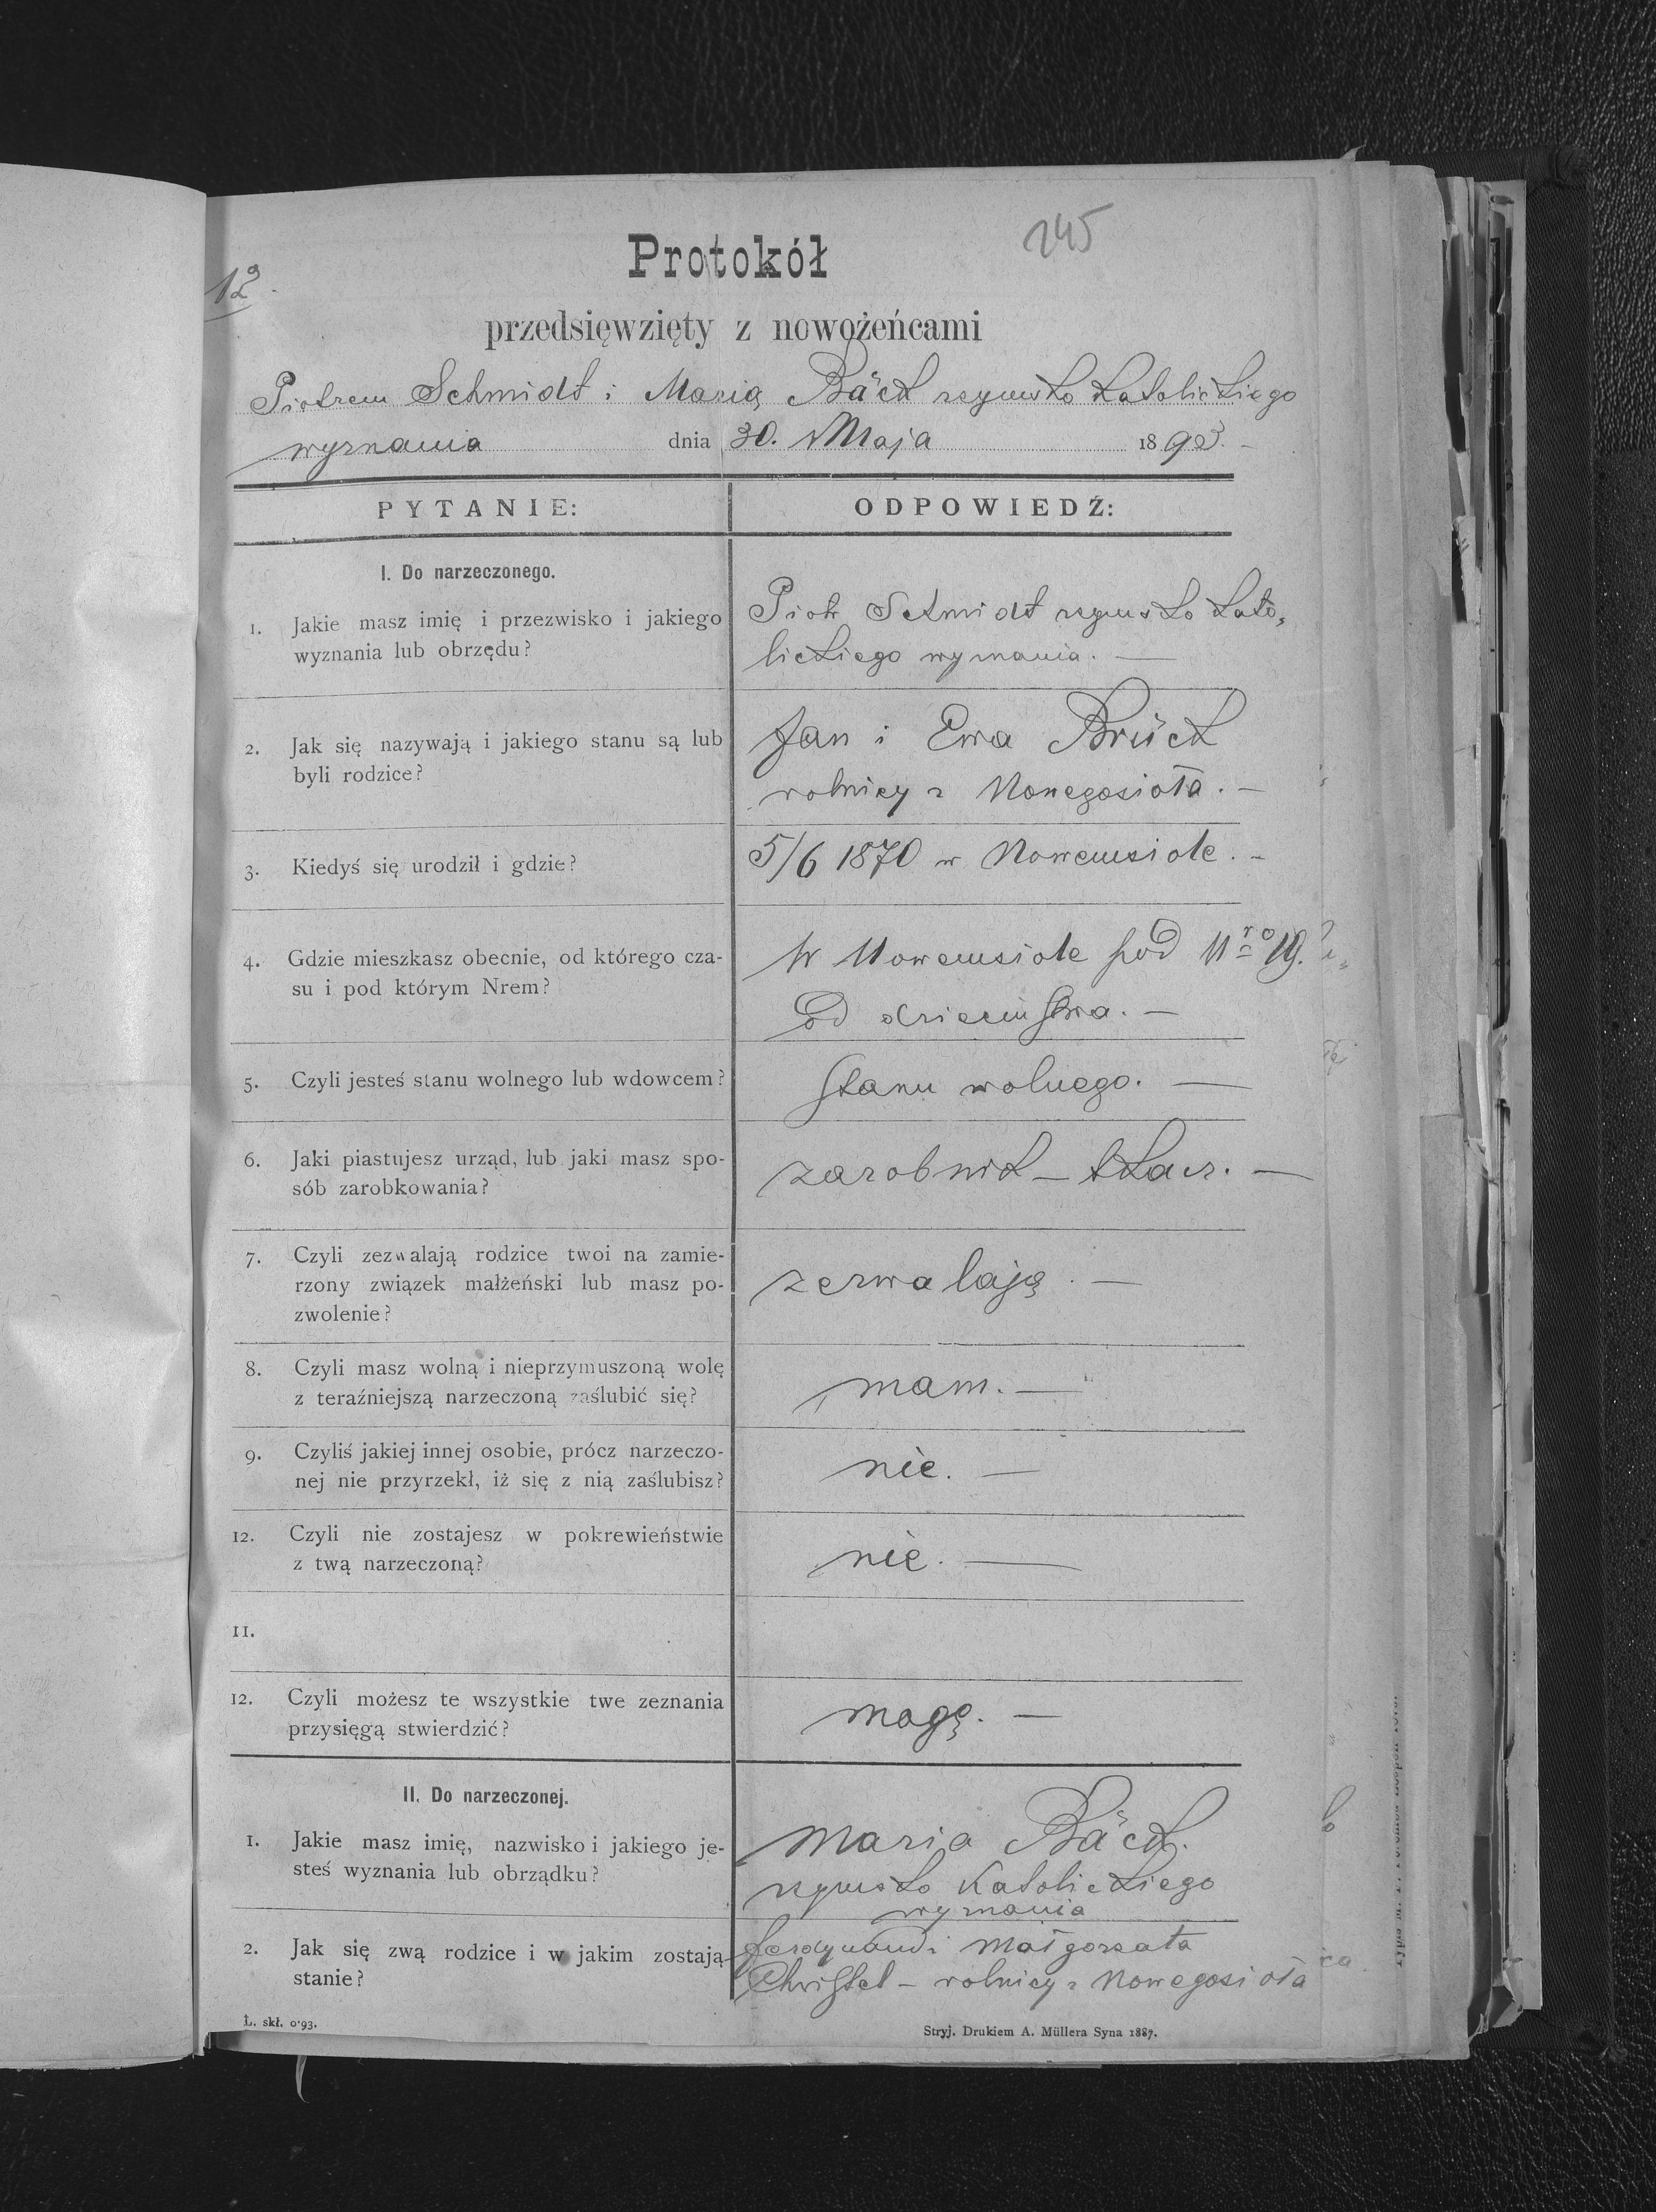 245
Protokół
12.
przedsięwzięty z nowożeńcami
Piotrem Schmidt i Marią Bäck rzymsko katolickiego
wyznania dnia 30. Maja 1893. -
PYTANIE: ODPOWIEDŹ:
I. Do narzeczonego.
1. Jakie masz imię i przezwisko i jakiego
wyznania lub obrzędu?
Piotr Schmidt rzymsko kato„
lickiego wyznania. —
2. Jak się nazywają i jakiego stanu są lub
byli rodzice?
Jan i Ewa Brück
rolnicy z Nowegosioła. —
3. Kiedyś się urodził i gdzie?
5/6 1870 w Nowemsiole. -
4. Gdzie mieszkasz obecnie, od którego cza-
su i pod którym Nrem?
W Nowemsiole pod Nro 19.
Od dzieciństwa. —
5. Czyli jesteś stanu wolnego lub wdowcem?
Stanu wolnego. —
6. Jaki piastujesz urząd, lub jaki masz spo-
sób zarobkowania?
zarobnik - tkacz. —
7. Czyli zezwalają rodzice twoi na zamie-
rzony związek małżeński lub masz po-
zwolenie?
zezwalają. —
8. Czyli masz wolną i nieprzymuszoną wolę
z teraźniejszą narzeczoną zaślubić się?
mam. —
9. Czyliś jakiej innej osobie, prócz narzeczo-
nej nie przyrzekł, iż się z nią zaślubisz?
nie. —
12. Czyli nie zostajesz w pokrewieństwie
z twą narzeczoną?
nie. —
11.
12. Czyli możesz te wszystkie twe zeznania
przysięgą stwierdzić?
mogę. —
II. Do narzeczonej.
1. Jakie masz imię, nazwisko i jakiego je-
steś wyznania lub obrządku?
Maria Bäck.
rzymsko Katolickiego
wyznania
2. Jak się zwą rodzice i w jakim zostają
stanie?
Ferdynand i Małgorzata
Christel - rolnicy z Nowegosioła
L. skł. 0·93.
Stryj. Drukiem A. Müllera Syna 1887.